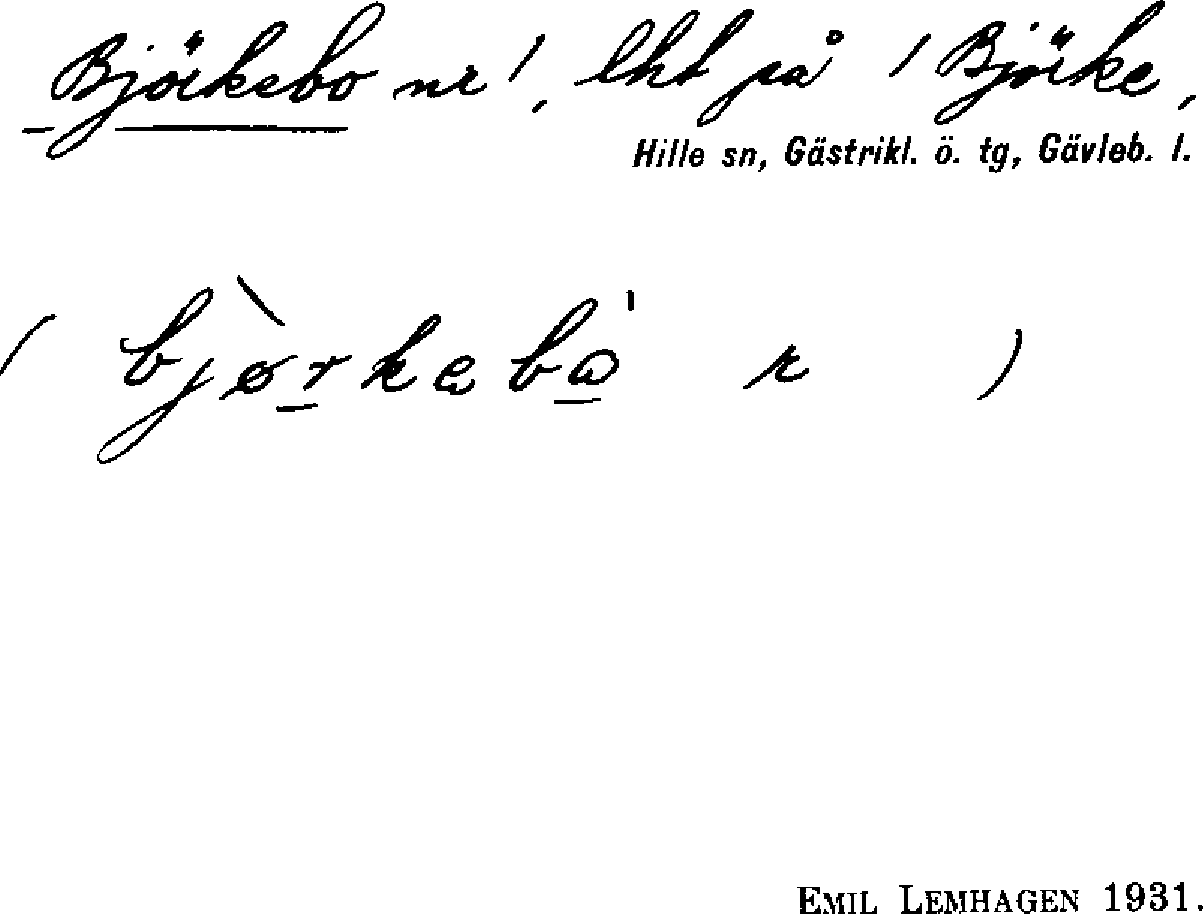 Björkebo nr 1, lht på 1 Björke,
Hille sn, Gästrikl. ö. tg, Gävleb. l.
( bjø̀rkebω̲ˈ r )
EMIL LEMHAGEN 1931.